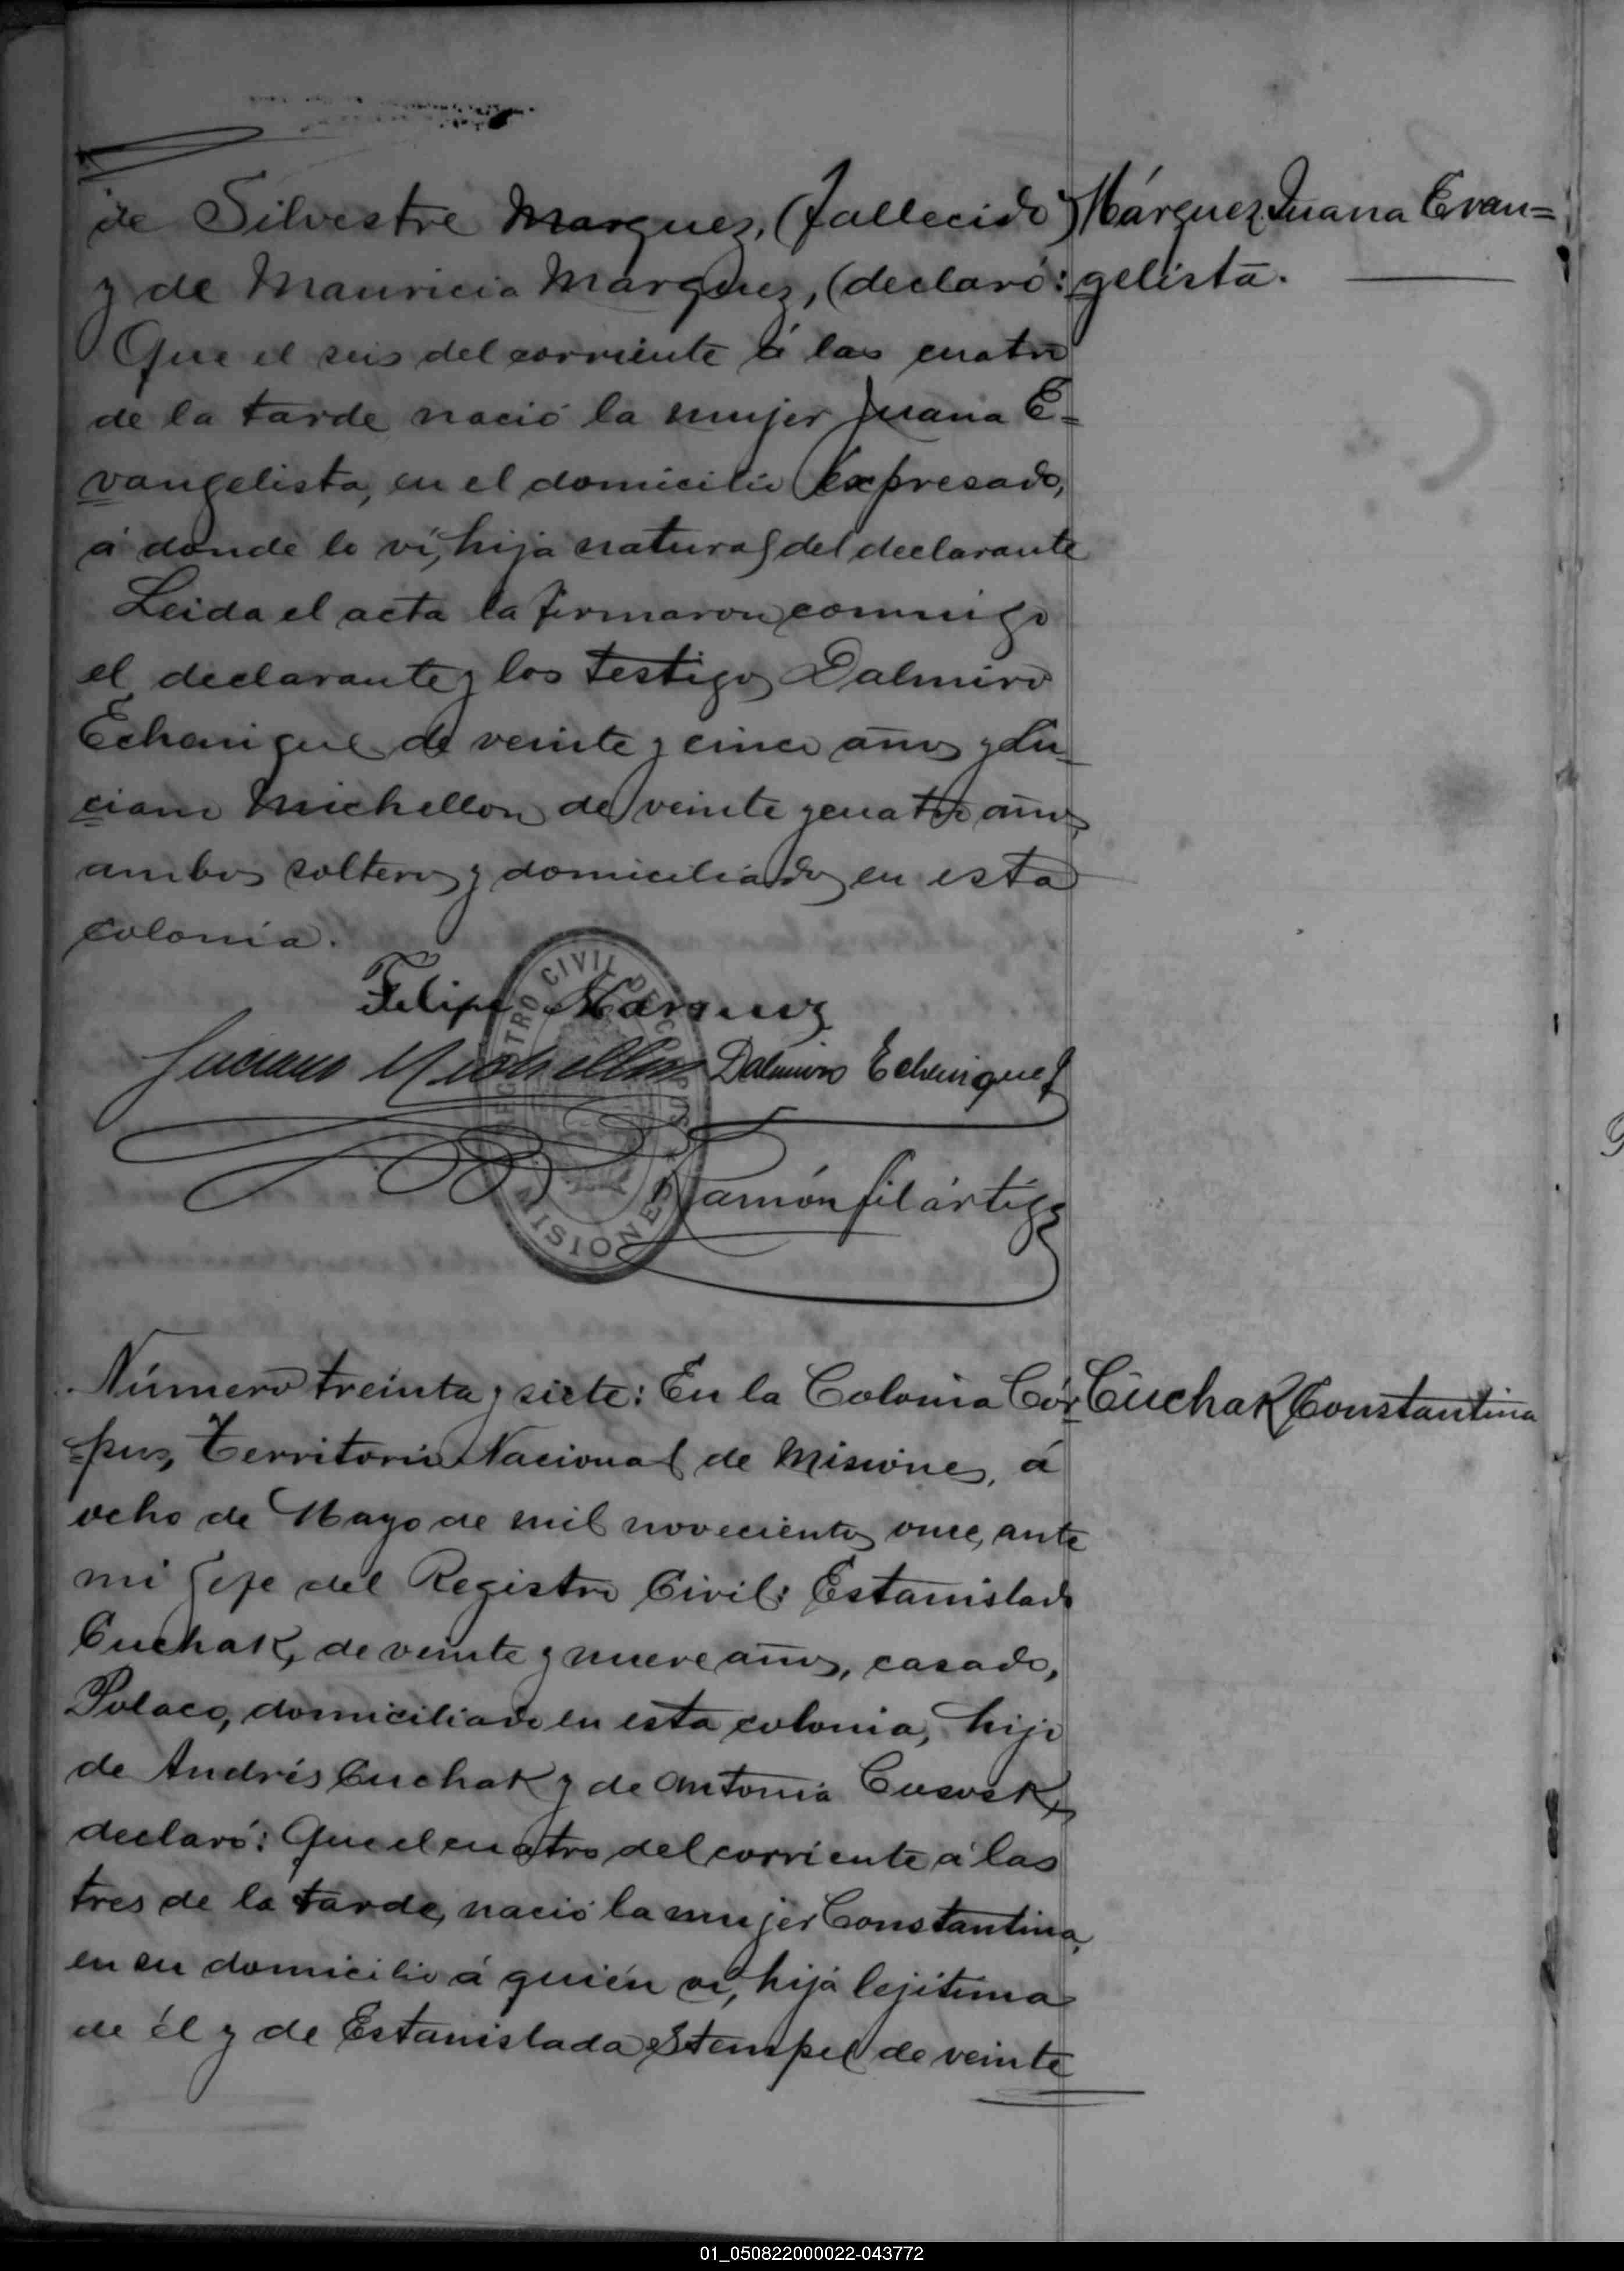 de Silvestre Marquez, (fallecido)
Márquez Juana Evan=
y de Mauricia Marquez, (declaró:
gelista.
Que el seis del corriente á las cuatro
de la tarde nació la mujer Juana E=
vangelista, en el domicilio expresado,
á donde lo ví, hija natural del declarante
Leida el acta la firmaron conmigo
el declarante y los testigos Dalmiro
Echenique de veinte y cinco años y Lu_
ciano Michellon de veinte y cuatro años,
ambos solteros y domiciliados en esta
colonia.
Felipe Marquez
Luciano Michellon Dalmiro Echenique
REGISTRO CIVIL DE CORPUS
MISIONES
Ramón Filártiga
Número treinta y siete: En la Colonia Cór
Cuchak Constantina
=pus, Territorio Nacional de Misiones, á
ocho de Mayo de mil novecientos once, ante
mi Gefe del Registro Civil: Estanislado
Cuchak, de veinte y nueve años, casado,
Polaco, domiciliado en esta colonia, hijo
de Andrés Cuchak y de Antonia Cusosk,
declaró: Que el cuatro del corriente á las
tres de la tarde, nació la mujer Constantina,
en su domicilio á quién ví, hija lejitima
de él y de Estanislada Stempel de veinte
01_050822000022-043772